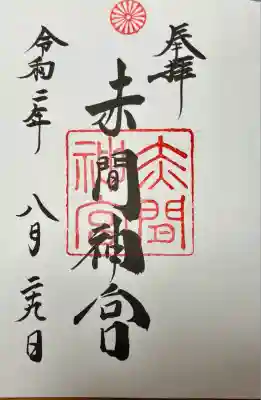 奉拝
赤間神宮
赤間
神宮
令和二年
八月二十九日